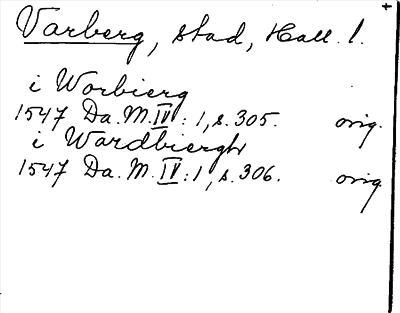 Varberg, stad, Hall. l.
i Worbierg
1547 Da. M. IV: 1, s. 305. orig.
i Wardbierghr
1547 Da. M. IV: 1, s. 306. orig